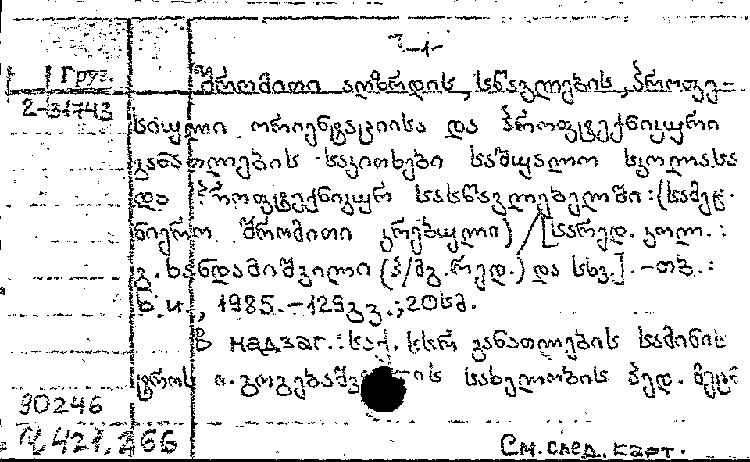 Груз.
2-31743
შრომითი აღზრდის, სწავლების, პროფე-
სიული ორიენტაციისა და პროფტექნიკური
განათლების საკითხები საშუალო სკოლასა
და პროფტექნიკურ სასწავლებელში: (სამეც-
ნიერო შრომითი კრებული) / [სარედ. კოლ.:
გ. ხანდამიშვილი (პ/მგ. რედ.) და სხვ.]. -თბ.:
ხ.ი., 1985. - 129გვ.; 20სმ.
В надзаг.: საქ. სსრ განათლების სამინის
ტროს ი. გოგებაშვ ის სახელობის პედ. მეც
90246
Ч 421.266
См. след. карт.